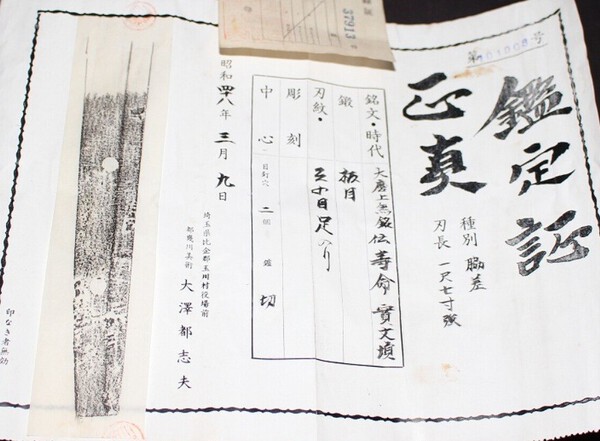 鑑定証
正真
種別 脇差
刃長 一尺七寸強
銘文・時代 大磨上無銘伝寿命 寛文頃
鍛 板目
刃紋・ 互の目足入り
彫刻
中心 目釘穴 二個 鑢 切
昭和四十八年三月九日
埼玉県比企郡玉川村役場前
都幾川美術 大澤都志夫
印なき者無効
37913